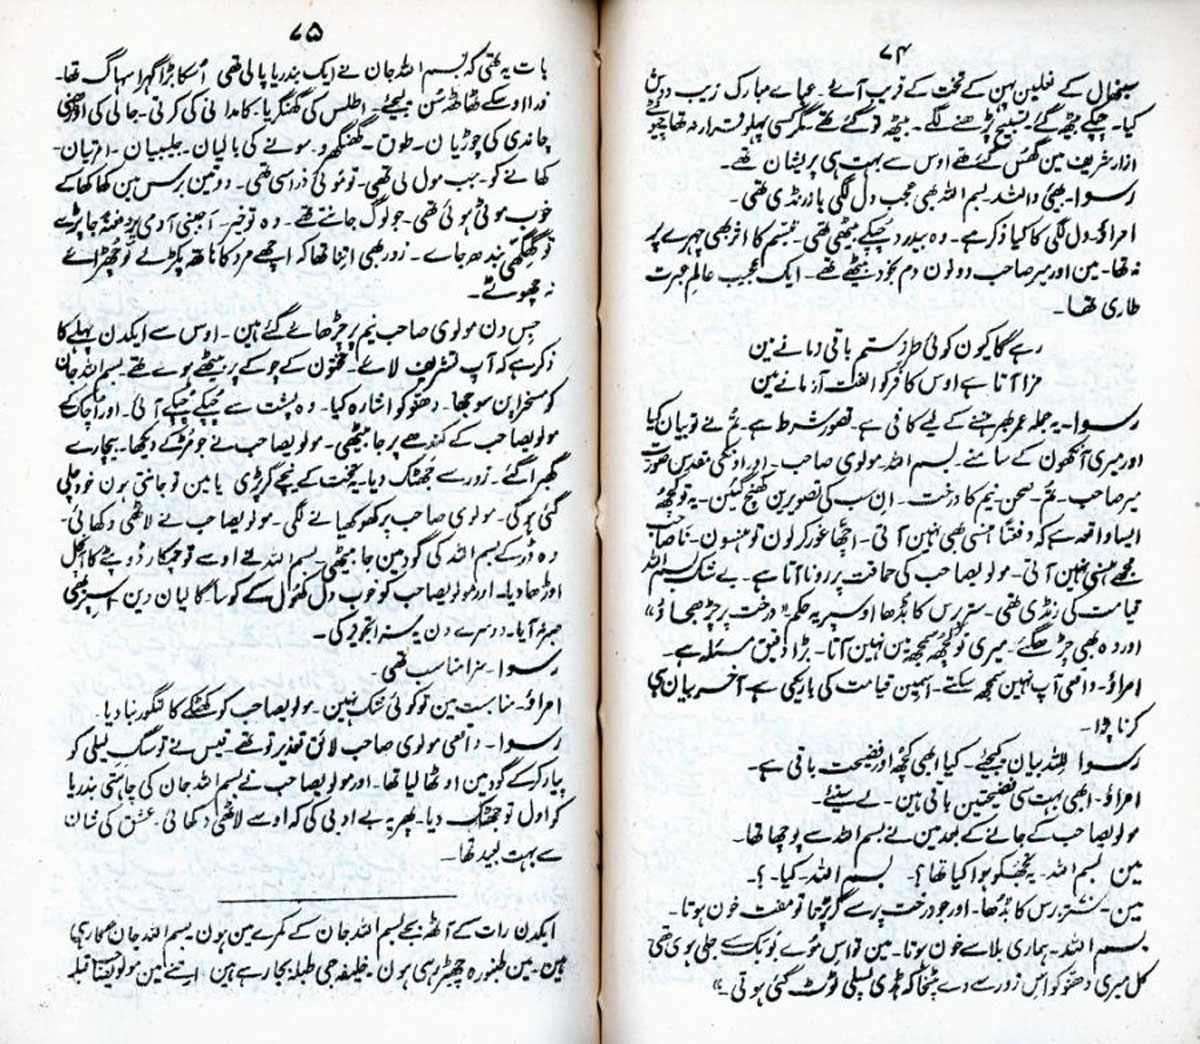 ۷۴
سنبھال کے نعلین پہن کے تخت کے قریب آئے۔ عباے مبارک زیب دوش
کیا۔ چپکے بیٹھ گئے۔ تسبیح پڑھنے لگے۔ بیٹھ تو گئے تھے۔ مگر کسی پہلو قرار نہ تھا چیونٹے
ازار شریف مین گھس گئے تھے اوس سے بہت ہی پریشان تھے۔
رسوا۔ بھئی واللہ۔ بسم اللہ بھی عجب دل لگی باز رنڈی تھی۔
امراؤ۔ دل لگی کا کیا ذکر ہے۔ وہ بیدرد چپکے بیٹھی تھی۔ تبسم کا اثر بھی چہرے پر
نہ تھا۔ مین اور میر صاحب دونون دم بخود بیٹھے تھے۔ ایک عجیب عالم عبرت
طاری تھا۔
رہے گا کیون کوئی طرز ستم باقی زمانے مین
مزا آتا ہے اوس کافر کو الفت آزمانے مین
رسوا۔ یہ جملہ عمر بھر ہنسنے کے لیے کافی ہے۔ تصور شرط ہے۔ تم نے تو بیان کیا
اور میری آنکھون کے سامنے۔ بسم اللہ۔ مولوی صاحب۔ اور اونکی مقدس صورت
میر صاحب۔ تم۔ صحن۔ نیم کا درخت۔ ان سب کی تصویرین کھنچ گئین۔ یہ تو کچھ
ایسا واقعہ ہے کہ دفعتاً ہنسی بھی نہین آتی۔ اچھا غور کر لون تو ہنسون۔ نا صاحب
مجھے ہنسی نہین آتی۔ مولویصاحب کی حماقت پر رونا آتا ہے۔ بے شک بسم اللہ
قیامت کی رنڈی تھی۔ ستر برس کا بڈھا اوسپر یہ حکم "درخت پر چڑھجاؤ"
اور وہ بھی چڑھ گئے۔ میری تو کچھ سمجھ مین نہین آتا۔ بڑا دقیق مسئلہ ہے۔
امراؤ۔ واقعی آپ نہین سمجھ سکتے۔ اسمین قیامت کی باریکی ہے۔ آخر بیان ہی
کرنا پڑا۔
رسوا۔ للہ بیان کیجئے۔ کیا ابھی کچھ اور فضیحت باقی ہے۔
امراؤ۔ ابھی بہت سی فضیحتین باقی ہین۔ لے سنئے۔
مولویصاحب کے جانے کے بعد مین نے بسم اللہ سے پوچھا تھا۔
مین۔ بسم اللہ۔ یہ تجھکو ہوا کیا تھا؟۔ بسم اللہ۔ کیا۔؟۔
مین۔ ستر برس کا بڈھا۔ اور جو درخت پر سے گر پڑتا تو مفت خون ہوتا۔
بسم اللہ۔ ہماری بلا سے خون ہوتا۔ مین تو اس موے بوبک سے جلی ہوی تھی
کل میری دھنو کو اس زور سے دے پٹخا کہ ہڈی پسلی ٹوٹ گئی ہوتی۔"
۷۵
بات یہ تھی کہ بسم اللہ جان نے ایک بندریا پالی تھی اسکا بڑا گہرا سہاگ تھا۔
ذرا اوسکے ٹھاٹھ سن لیجئے۔ اطلس کی گھنگریا۔ کامدانی کی کرتی۔ جالی کی اوڑھنی
چاندی کی چوڑیان۔ طوق۔ گھنگھرو۔ سونے کی بالیان۔ جلیبیان۔ امرتیان۔
کھانے کو۔ جب مول لی تھی۔ تو موئی ذرا سی تھی۔ دو تین برس مین کھا کھا کے
خوب موٹی ہوئی تھی۔ جو لوگ جانتے تھے۔ وہ تو خیر۔ اجنبی آدمی پر دھنو جا پڑے
تو گھگھی بندھ جاے۔ زور بھی اتنا تھا کہ اچھے مرد کا ہاتھ پکڑ لے تو چھڑائے
نہ چھوٹے۔
جس دن مولوی صاحب نیم پر چڑھائے گئے ہین۔ اوس سے ایکدن پہلے کا
ذکر ہے کہ آپ تشریف لائے۔ تختون کے چوکے پر بیٹھے ہوے تھے۔ بسم اللہ جان
کو مسخراپن سوجھا۔ دھنو کو اشارہ کیا۔ وہ پشت سے چپکے چپکے آئی۔ اور اچک کے
مولویصاحب کے کندھے پر جا بیٹھی۔ مولویصاحب نے جو مڑ کے دیکھا۔ بیچارے
گھبرا گئے۔ زور سے جھٹک دیا۔ یہ تخت کے نیچے گر پڑی یا مین تو جانتی ہون خود چلی
گئی ہوگی۔ مولوی صاحب پر کھوکھیانے لگی۔ مولویصاحب نے لاٹھی دکھائی۔
وہ ڈر کے بسم اللہ کی گود مین جا بیٹھی۔ بسم اللہ نے اوسے تو چمکارا دوپٹے کا آنچل
اوڑھا دیا۔ اور مولویصاحب کو خوب دل کھول کے کوسا گالیان دین اسپر بھی
صبر نہ آیا۔ دوسرے دن یہ سزا تجویز کی۔
رسوا۔ سزا مناسب تھی۔
امراؤ۔ مناسبت مین تو کوئی شک نہین۔ مولویصاحب کو کھٹکے کا لنگور بنا دیا۔
رسوا۔ واقعی مولوی صاحب لائق تعذیر تو تھے۔ قیس نے تو سگ لیلی کو
پیار کرکے گود مین اوٹھا لیا تھا۔ اور مولویصاحب نے بسم اللہ جان کی چاہتی بندریا
کو اول تو جھٹک دیا۔ پھر یہ بے ادبی کی کہ اوسے لاٹھی دکھائی۔ عشق کی شان
سے بہت بعید تھا۔
ایکدن رات کے آٹھ بجے بسم اللہ جان کے کمرے مین ہون بسم اللہ جان گا رہی
ہین۔ مین طنبورہ چھیڑ رہی ہون۔ خلیفہ جی طبلہ بجا رہے ہین اتنے مین مولویصاحب قبلہ